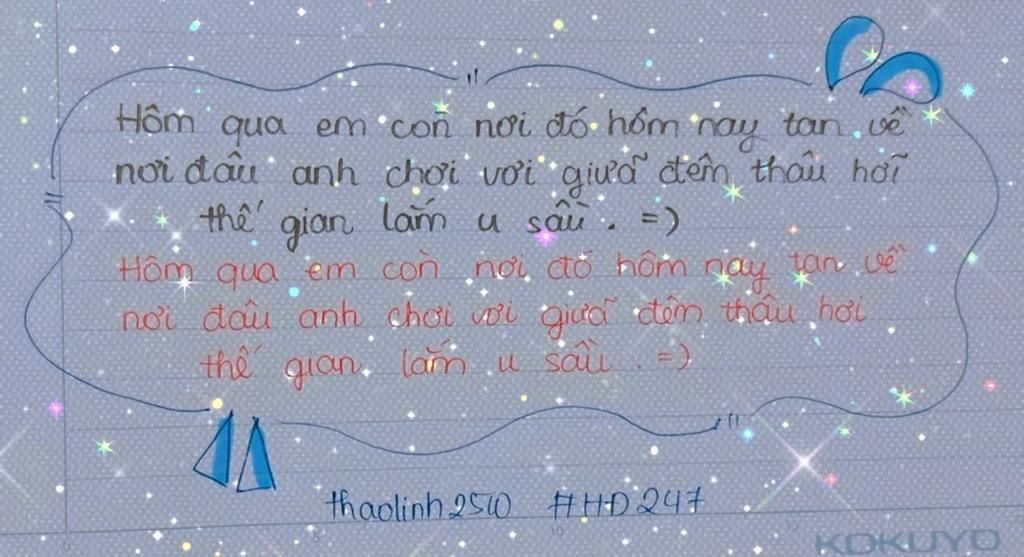 Hôm qua em còn nơi đó hôm nay tan về
nơi đâu anh chơi vơi giữa đêm thâu hỡi
thế gian lắm u sầu. =)
Hôm qua em còn nơi đó hôm nay tan về
nơi đâu anh chơi vơi giữa đêm thâu hơi
thế gian lắm u sầu. =)
thaolinh2510 #HĐ247
KOKUYO